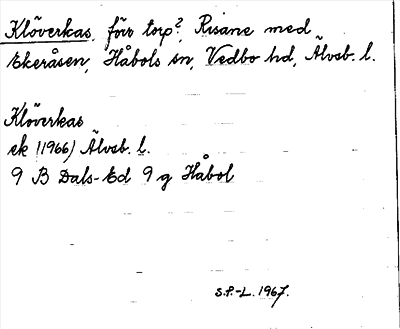 Klöverkas, förs torp? Risane med
Ekeråsen, Håbols sn, Vedbo hd, Älvsb. l.
Klöverkas
ek (1966) Älvsb. l.
9 B Dals-Ed 9 g Håbol
S.P.-L. 1967.